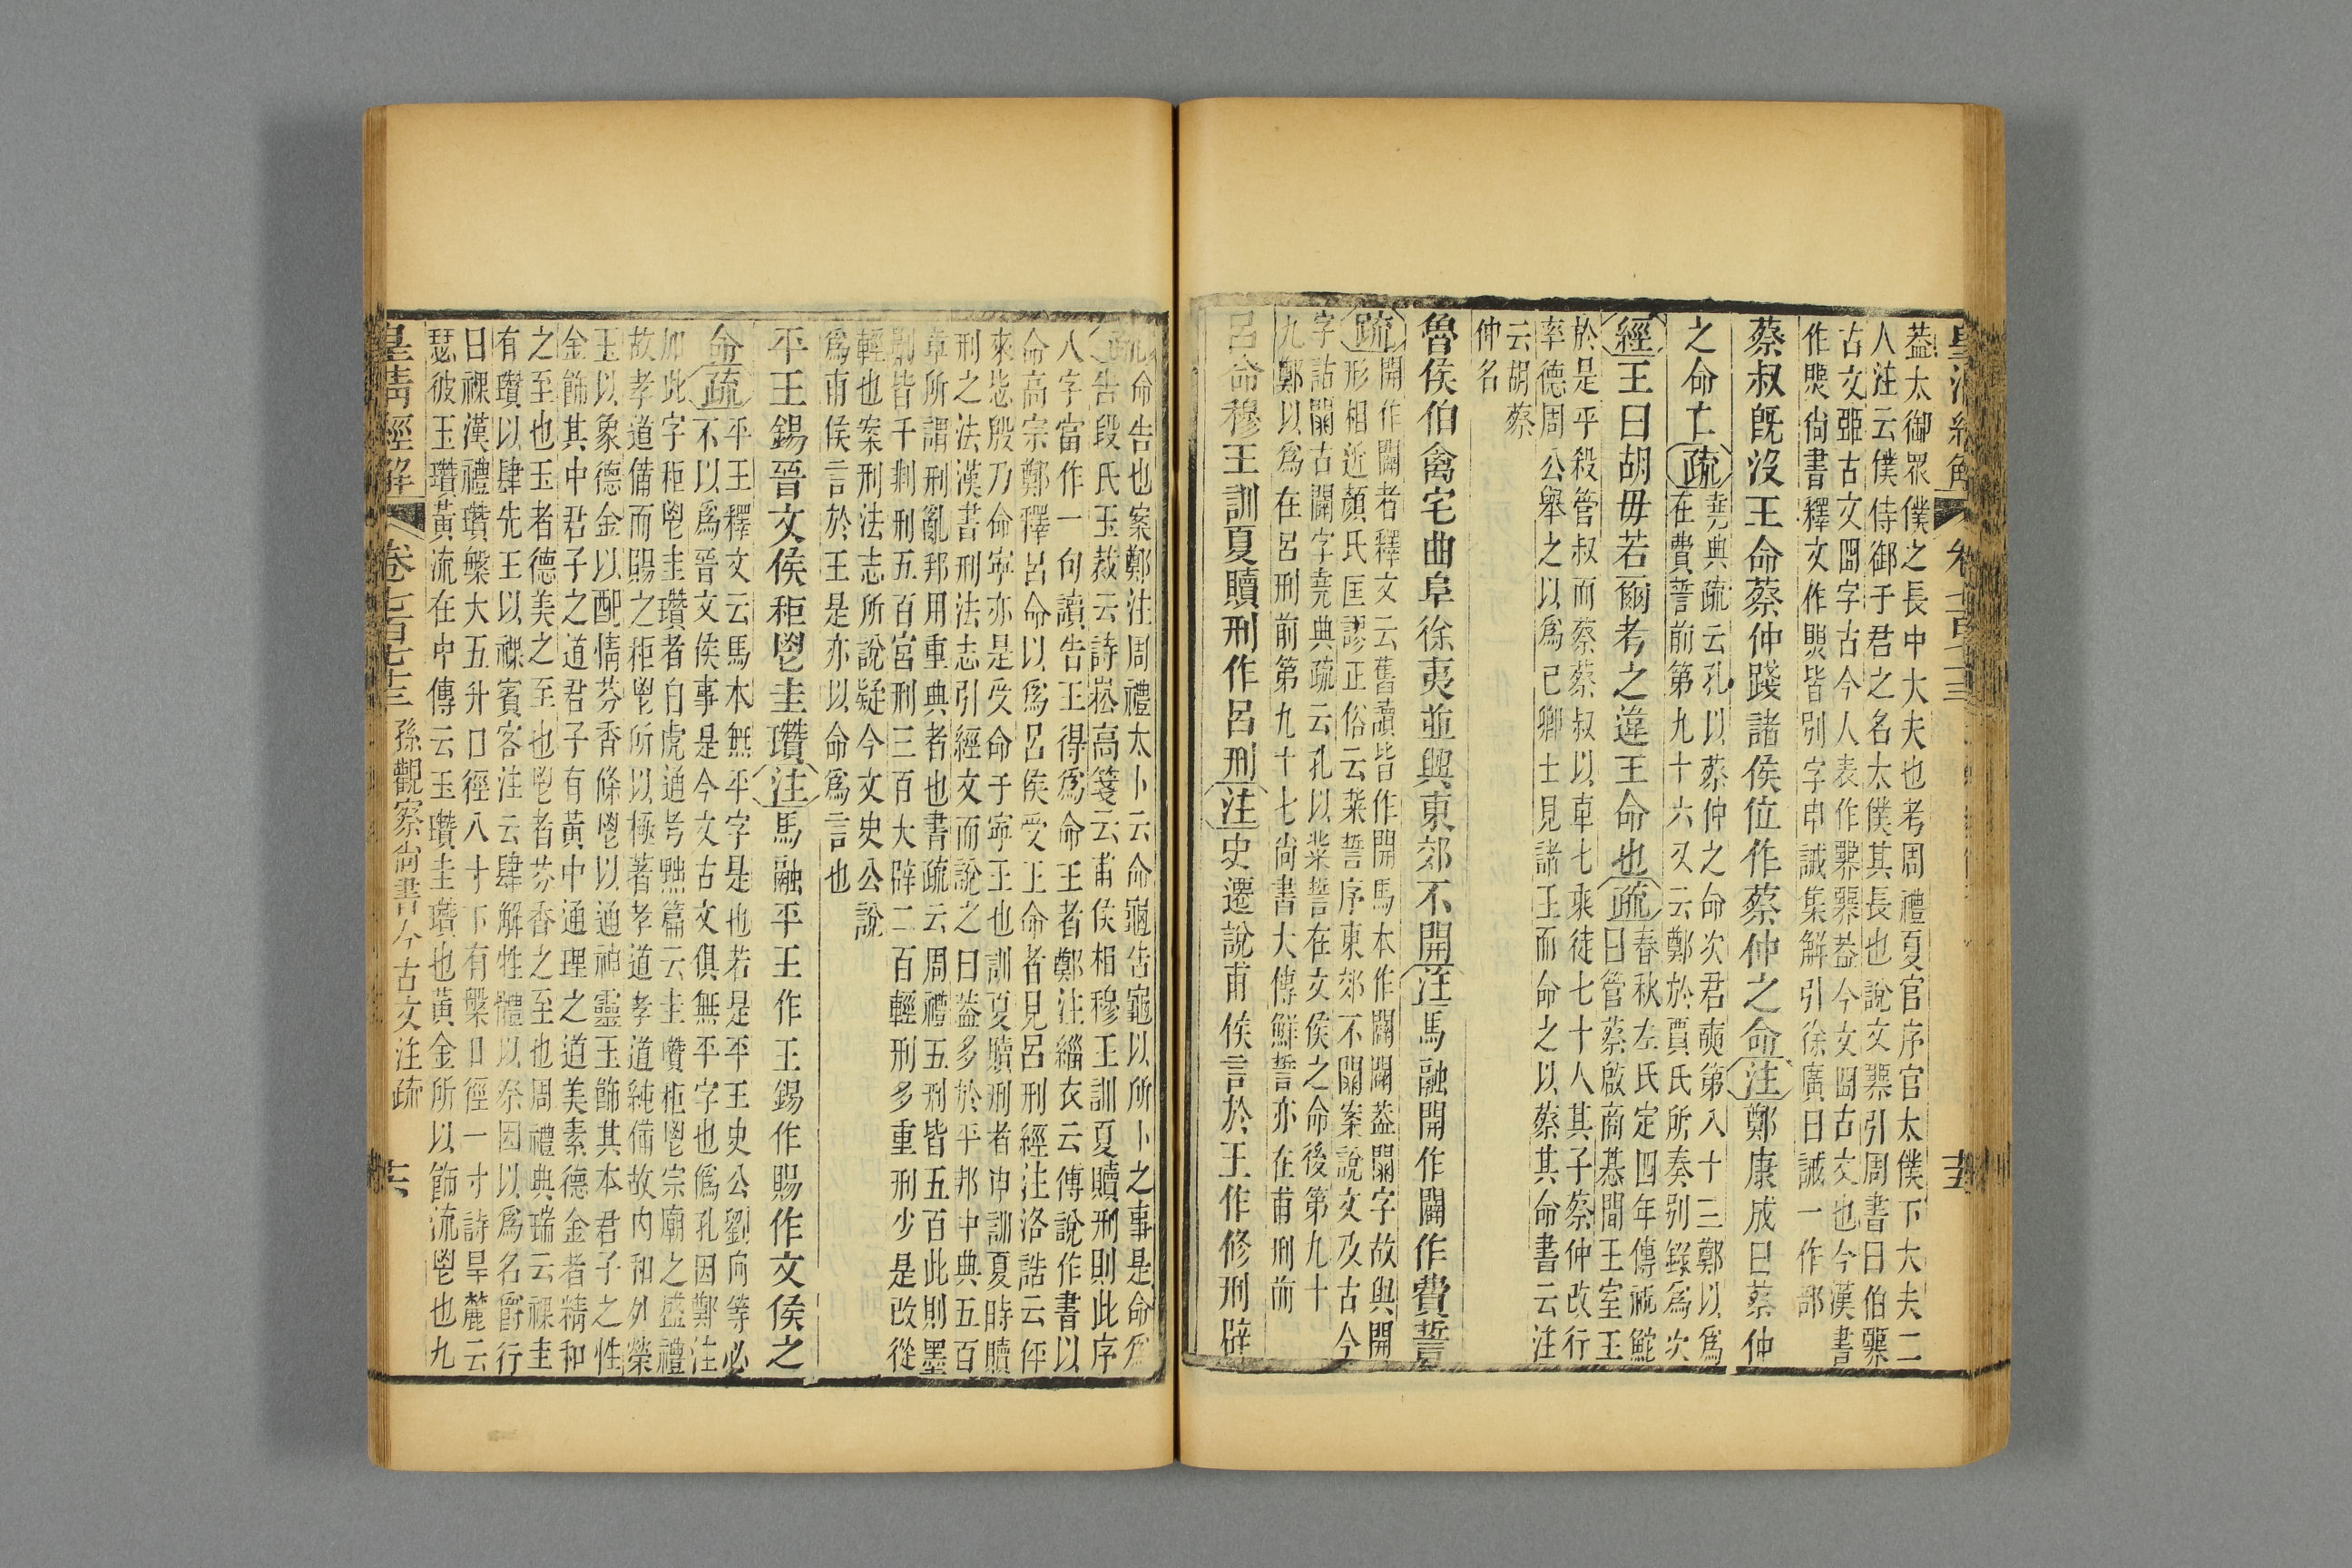 蓋太御眾僕之長中大夫也考周禮夏官序官太僕下大夫二
人注云僕侍御于君之名太僕其長也說文臩引周書曰伯臩
古文臦古文囧字古今人表作臩臩蓋今文囧古文也今漢書
作煛尚書釋文作煚皆別字申誡集解引徐廣曰誡一作部
蔡叔既沒王命蔡仲踐諸侯位作蔡仲之命注鄭康成曰蔡仲
之命亡疏堯典疏云孔以蔡仲之命次君奭第八十三鄭以為
在費誓前第九十六又云鄭於賈氏所奏別錄為次
經王曰胡毋若爾考之違王命也疏春秋左氏定四年傳祝鮀
曰管蔡啟商惎間王室王
於是乎殺管叔而蔡蔡叔以車七乘徒七十人其子蔡仲改行
率德周公舉之以為己卿士見諸王而命之以蔡其命書云注
云胡蔡
仲名
魯侯伯禽宅曲阜徐夷並興東郊不開注馬融開作闢作費誓
疏開作闢者釋文云舊讀皆作開馬本作闢闢蓋闢字故與開
形相近顏氏匡謬正俗云粊誓序東郊不闢案說文及古今
字詁闢古闢字堯典疏云孔以粊誓在文侯之命後第九十
九鄭以為在呂刑前第九十七尚書大傳鮮誓亦在甫刑前
呂命穆王訓夏贖刑作呂刑注史遷說甫侯言於王作修刑辟
疏命告也案鄭注周禮太卜云命龜告龜以所卜之事是命為
告段氏玉裁云詩崧高箋云甫侯相穆王訓夏贖刑則此序
八字當作一句讀告王得為命王者鄭注緇衣云傳說作書以
命高宗鄭釋呂命以為呂侯受王命者見呂刑經注洛誥云伻
來毖殷乃命寧亦是受命于寧王也訓夏贖刑者申訓夏時贖
刑之法漢書刑法志引經文而說之曰蓋多於平邦中典五百
章所謂刑亂邦用重典者也書疏云周禮五刑皆五百此則墨
劓皆千剕刑五百宮刑三百大辟二百輕刑多重刑少是改從
輕也案刑法志所說疑今文史公說
為甫侯言於王是亦以命為言也
平王錫晉文侯秬鬯圭瓚注馬融平王作王錫作賜作文侯之
命疏平王釋文云馬本無平字是也若是平王史公劉向等必
不以為晉文侯事是今文古文俱無平字也偽孔因鄭注
加此字秬鬯圭瓚者白虎通攷黜篇云圭瓚秬鬯宗廟之盛禮
故孝道備而賜之秬鬯所以極著孝道孝道純備故內和外榮
玉以象德金以配情芬香條鬯以通神靈玉飾其本君子之性
金飾其中君子之道君子有黃中通理之道美素德金者精和
之至也玉者德美之至也鬯者芬香之至也周禮典瑞云祼圭
有瓚以肆先王以祼賓客注云肆解牲體以祭因以為名爵行
曰祼漢禮瓚槃大五升口徑八寸下有槃口徑一寸詩旱麓云
瑟彼玉瓚黃流在中傳云玉瓚圭瓚也黃金所以飾流鬯也九
皇清經解 卷七百七十三 孫觀察尚書今古文注疏 十六